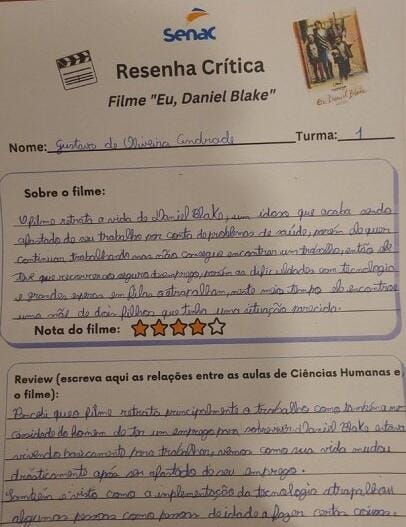 Senac
Resenha Crítica
Filme "Eu, Daniel Blake"
Eu, Daniel Blake
Nome: Gustavo de Oliveira Andrade Turma: 1
Sobre o filme:
O filme retrata a vida de Daniel Blake, um idoso que acaba sendo
afastado de seu trabalho por conta de problemas de saúde, porém ele quer
continuar trabalhando mas não consegue encontrar um trabalho, então ele
teve que recorrer ao seguro desemprego, porém as dificuldades com tecnologia
e grandes esperas em filas o atrapalham, neste meio tempo ele encontrou
uma mãe de dois filhos que tinha uma situação parecida.
Nota do filme:
Review (escreva aqui as relações entre as aulas de Ciências Humanas e
o filme):
Percebi que o filme retrata principalmente o trabalho como também a ne-
cessidade do homem de ter um emprego para sobreviver. Daniel Blake estava
vivendo basicamente para trabalhar, vemos como sua vida mudou
drasticamente após ser afastado do seu emprego.
Também é visto como a implementação da tecnologia atrapalhou
algumas pessoas como pessoas de idade a fazer certas coisas.